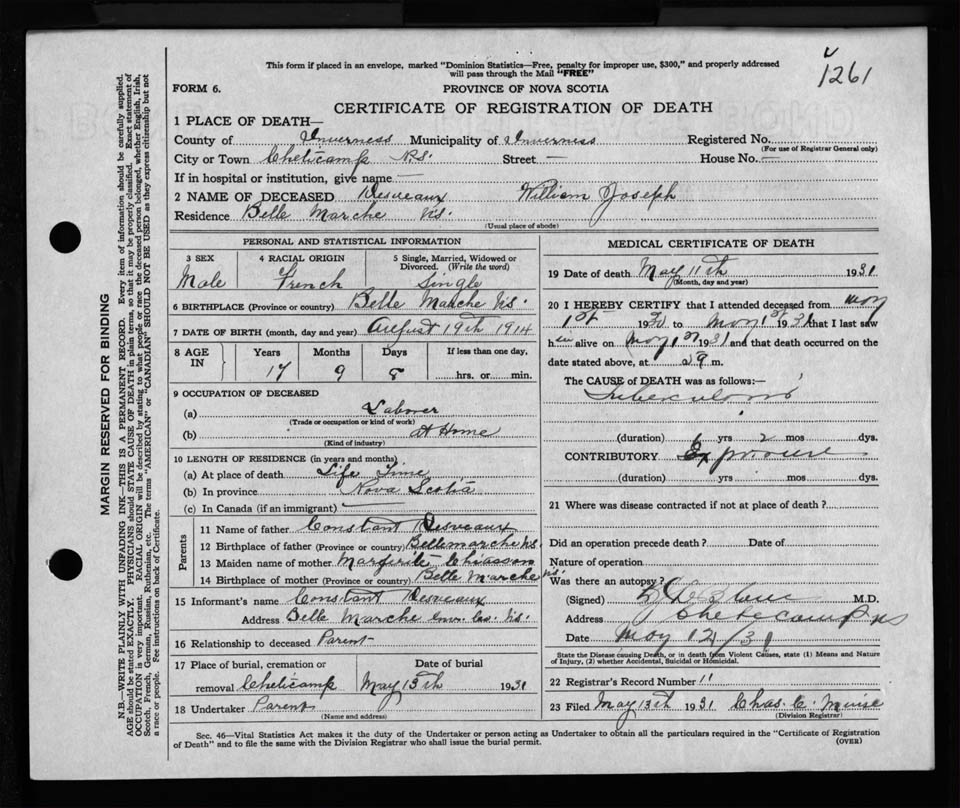 1261
This form if placed in an envelope, marked "Dominion Statistics—Free, penalty for improper use, $300," and properly addressed
will pass through the Mail "FREE"
FORM 6.
PROVINCE OF NOVA SCOTIA
CERTIFICATE OF REGISTRATION OF DEATH
1 PLACE OF DEATH—
County of Inverness Municipality of Inverness Registered No.
(For use of Registrar General only)
City or Town Cheticamp N.S. Street — House No. —
If in hospital or institution, give name —
2 NAME OF DECEASED Desveaux William Joseph
Residence Belle Marche N.S.
(Usual place of abode)
PERSONAL AND STATISTICAL INFORMATION
3 SEX
Male
4 RACIAL ORIGIN
French
5 Single, Married, Widowed or
Divorced. (Write the word)
Single
6 BIRTHPLACE (Province or country) Belle Marche N.S.
7 DATE OF BIRTH (month, day and year) August 19th 1914
8 AGE
IN
Years
17
Months
9
Days
8
If less than one day,
hrs. or min.
9 OCCUPATION OF DECEASED
(a) Laborer
(Trade or occupation or kind of work)
(b) at Home
(Kind of industry)
10 LENGTH OF RESIDENCE (in years and months)
(a) At place of death Life Time
(b) In province Nova Scotia
(c) In Canada (if an immigrant)
Parents
11 Name of father Constant Desveaux
12 Birthplace of father (Province or country) Bellemarche N.S.
13 Maiden name of mother Marguerite Chiasson
14 Birthplace of mother (Province or country) Belle Marche N.S.
15 Informant's name Constant Desveaux
Address Belle Marche Inv. Co. N.S.
16 Relationship to deceased Parent
17 Place of burial, cremation or
removal Cheticamp
Date of burial
May 13th 1931
18 Undertaker Parent
(Name and address)
MEDICAL CERTIFICATE OF DEATH
19 Date of death May 11th 1931
(Month, day and year)
20 I HEREBY CERTIFY that I attended deceased from May
1st 193 to May 1st 1931 that I last saw
h alive on May 1st 1931 and that death occurred on the
date stated above, at 2 a m.
The CAUSE of DEATH was as follows:—
Tuberculosis
(duration) 6 yrs 2 mos dys.
CONTRIBUTORY Exposure
(duration) yrs. mos. dys.
21 Where was disease contracted if not at place of death?
Did an operation precede death? Date of
Nature of operation
Was there an autopsy?
(Signed) M.D.
Address Cheticamp NS
Date May 12/31
State the Disease causing Death, or in death from Violent Causes, state (1) Means and Nature
of Injury, (2) whether Accidental, Suicidal or Homicidal.
22 Registrar's Record Number 11
23 Filed May 13th 1931 Chas. C. Muise
(Division Registrar)
Sec. 46—Vital Statistics Act makes it the duty of the Undertaker or person acting as Undertaker to obtain all the particulars required in the "Certificate of Registration
of Death" and to file the same with the Division Registrar who shall issue the burial permit.
(OVER)
MARGIN RESERVED FOR BINDING
N.B.—WRITE PLAINLY WITH UNFADING INK—THIS IS A PERMANENT RECORD. Every item of information should be carefully supplied.
AGE should be stated EXACTLY. PHYSICIANS should STATE CAUSE OF DEATH in plain terms, so that it may be properly classified. Exact statement of
OCCUPATION is very important. RACIAL ORIGIN will be described by stating to what people or race the deceased person belonged, whether English, Irish,
Scotch, French, German, Russian, Ruthenian, etc. The terms "AMERICAN" or "CANADIAN" SHOULD NOT BE USED as they express citizenship but not
a race or people. Fee instructions on back of Certificate.